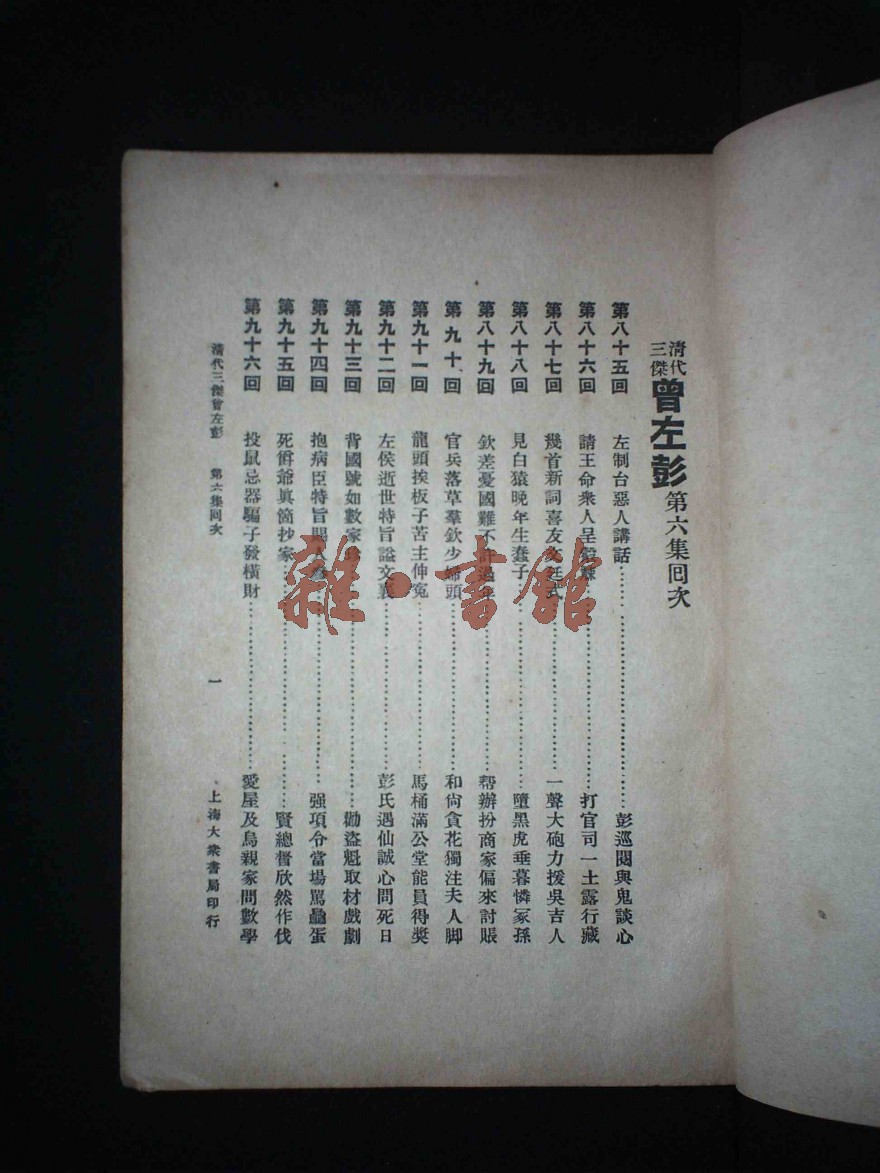 清代三傑曾左彭第六集回次
第八十五回 左制台惡人講話 彭巡閱與鬼談心
第八十六回 請王命衆人呈 打官司一士露行藏
第八十七回 幾首新詞喜友 一聲大砲力援吳吉人
第八十八回 見白猿晚年生蠢子 墮黑虎垂暮憐冢孫
第八十九回 欽差憂國難不許過年 帮辦扮商家偏來討賬
第九十回 官兵落草羣欽少婦頭 和尙貪花獨注夫人脚
第九十一回 龍頭挨板子苦主伸寃 馬桶滿公堂能員得獎
第九十二回 左侯逝世特旨謚文襄 彭氏遇仙誠心問死日
第九十三回 背國號如數家 勸盜魁取材戲劇
第九十四回 抱病臣特旨賜人 强項令當場駡龜蛋
第九十五回 死爵爺眞箇抄家 賢總督欣然作伐
第九十六回 投鼠忌器騙子發橫財 愛屋及烏親家問數學
清代三傑曾左彭 第六集回次 一 上海大衆書局印行
雜·書館